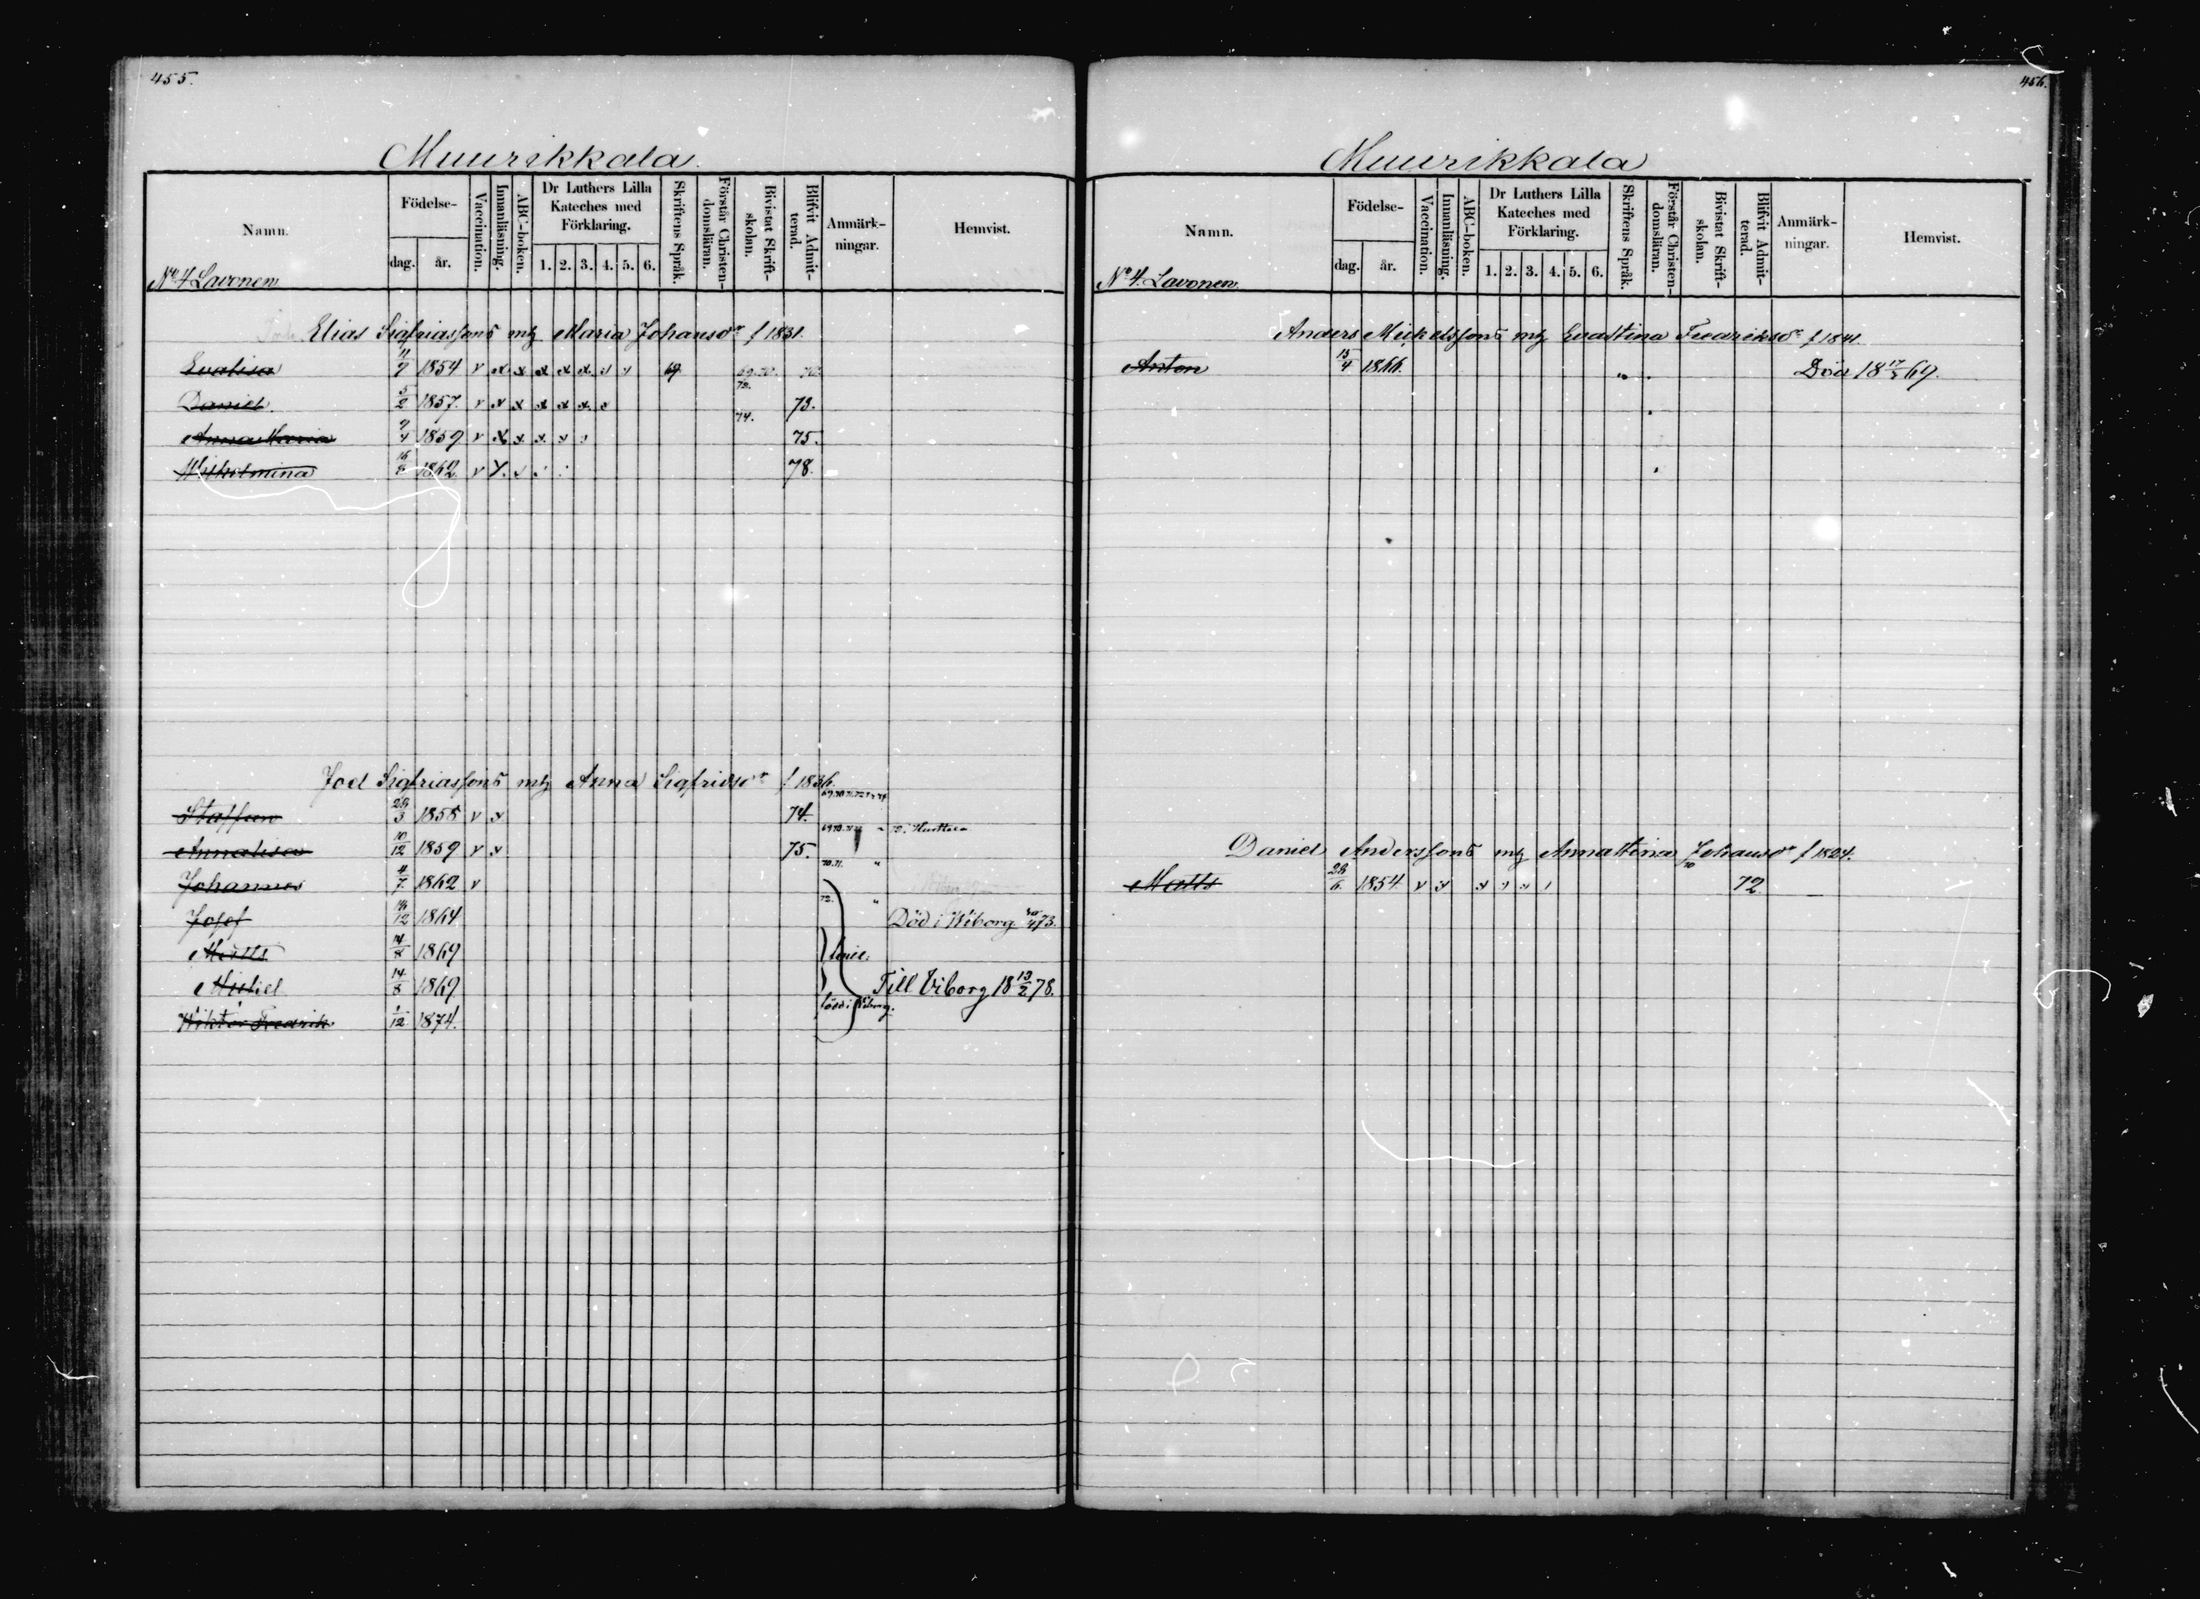 455.
Muurikkala.
Namn.
Födelse-
dag. år.
Vaccination.
Innanläsning.
ABC-boken.
Dr Luthers Lilla Kateches med Förklaring.
1. 2. 3. 4. 5. 6.
Skriftens Språk.
Förstår Christen-domsläran.
Bivistat Skrift-skolan.
Blifvit Admit-terad.
Anmärk-ningar.
Hemvist.
No 4 Lavonen
Elias Sigfridssons m/h Maria Johansdr f 1831.
Evalisa 11/9 1854 v x x x x x x x 69 69.70. 72.
Daniel. 5/2 1857. v x x x x x x 72. 73.
Anna Maria 9/4 1859 v x x x x 74. 75.
Wilhelmina 16/8 1862. v x 78.
Joel Sigfridssons m/h Anna Sigfridsdr f 1836.
Staffan 28/3 1858 v x 74.
Annalisa 10/12 1859 v x 75.
Johannes 4/7 1862 v 70.71. "
Josef 12 1864 72. " Död i Wiborg 73.
Matts 14/8 1869
Mickel 14/8 1869 Till Viborg 18 13/2 78.
Wiktor Fredrik 1/12 1874. född i Wiborg.
456.
Muurikkala
Namn.
Födelse-
dag. år.
Vaccination.
Innanläsning.
ABC-boken.
Dr Luthers Lilla Kateches med Förklaring.
1. 2. 3. 4. 5. 6.
Skriftens Språk.
Förstår Christen-domsläran.
Bivistat Skrift-skolan.
Blifvit Admit-terad.
Anmärk-ningar.
Hemvist.
No 4. Lavonen.
Anders Mickelssons m/h Evastina Fredriksdr f 1841
Anton 15/4 1866. Död 18 69.
Daniel Anderssons m/h Annastina Johansdr f 1824.
Matts 28/6 1854 v x 70 72